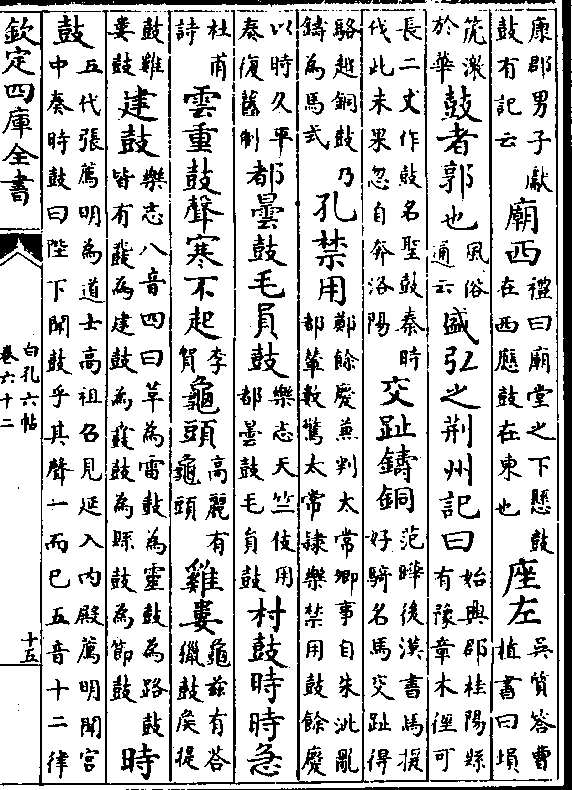 康郡男子獻鼓有記云廟西禮曰廟堂之下懸鼓在西應鼓在東也座左吳質答曹植書曰塤
箎激於華鼓者郭也風俗通云盛弘之荆州記曰始興郡桂陽縣有豫章木徑可
長二丈作鼓名聖鼓秦時伐此未果忽自奔洛陽交趾鑄銅范曄後漢書馬援好騎名馬交趾得
駱越銅鼓乃鑄為馬式孔禁用鄭餘慶兼判太常卿事自朱泚亂都輦數驚太常隷樂禁用鼓餘慶
以時久平奏復舊制都曇鼓毛員鼓樂志天竺伎用都曇鼓毛員鼓村鼓時時急
杜甫詩雲重鼓聲寒不起李賀龜頭高麗有龜頭雞婁龜兹有荅獵鼓矦提
鼓雞婁鼓建鼓樂志八音四曰革為雷鼓為靈鼓為路鼓皆有鼗為建鼓為鼗鼓為縣鼓為節鼓時
鼓五代張薦明為道士高祖召見延入内殿薦明聞宫中奏時鼓曰陛下聞鼓乎其聲一而已五音十二律
欽定四庫全書
白孔六帖
卷六十二
十五